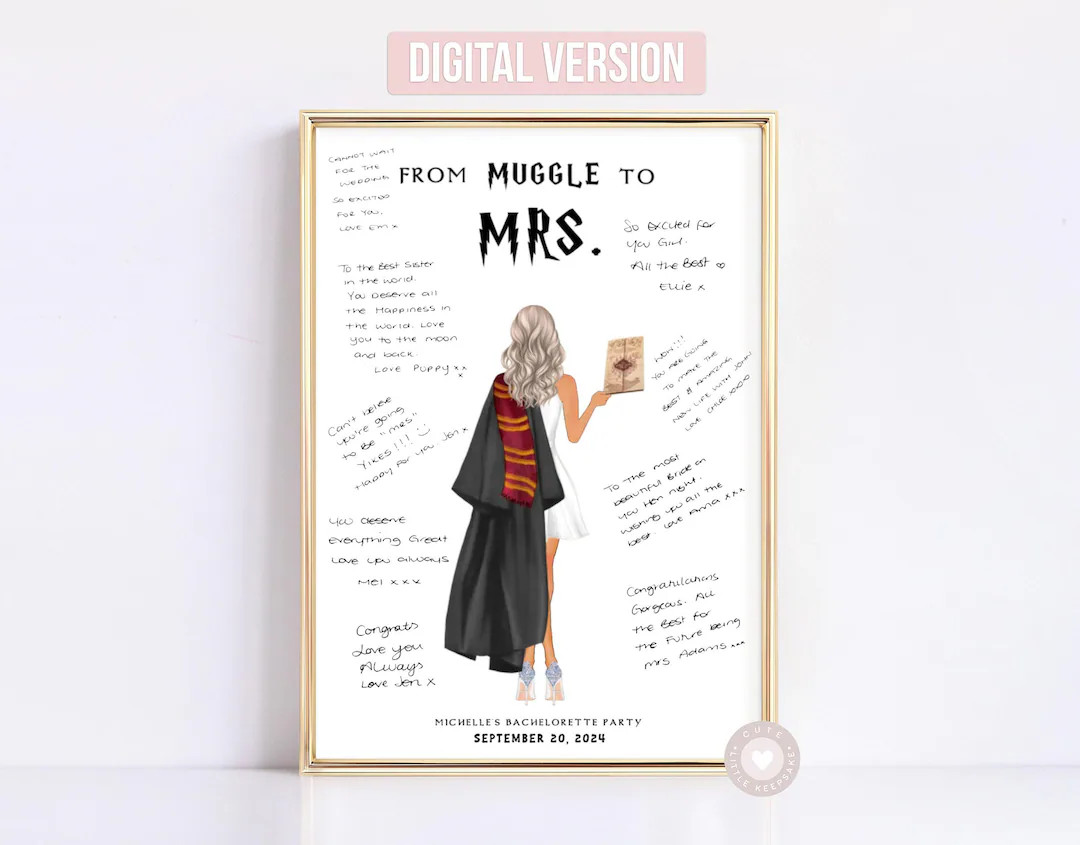 DIGITAL VERSION
FROM MUGGLE TO
MRS.
CANNOT WAIT
FOR THE
WEDDING
SO EXCITED
FOR YOU.
LOVE EM x
So Excited for
You Girl.
All the Best ∞
Ellie x
To the Best Sister
in the world.
You Deserve all
the Happiness in
the world. Love
you to the moon
and back.
Love Puppy xx
x
WOW!!!
YOU ARE GOING
TO MAKE THE
BEST & AMAZING
NEW LIFE WITH JOHN
LOVE CHLOE XOXO
Can't beleve
you're going
to Be "mrs"
YIKES!!! :)
Happy for you. Jen x
To the most
beautiful Bride on
you Hen night.
wishing you all the
best. Love Anna xxx
You deserve
everything Great
Love you always
Mel xxx
Congratulations
Gorgeous. All
the Best for
the Future being
Mrs Adams xxx
Congrats
Love you
Always
Love Jen x
MICHELLE'S BACHELORETTE PARTY
SEPTEMBER 20, 2024
CUTE
LITTLE KEEPSAKE